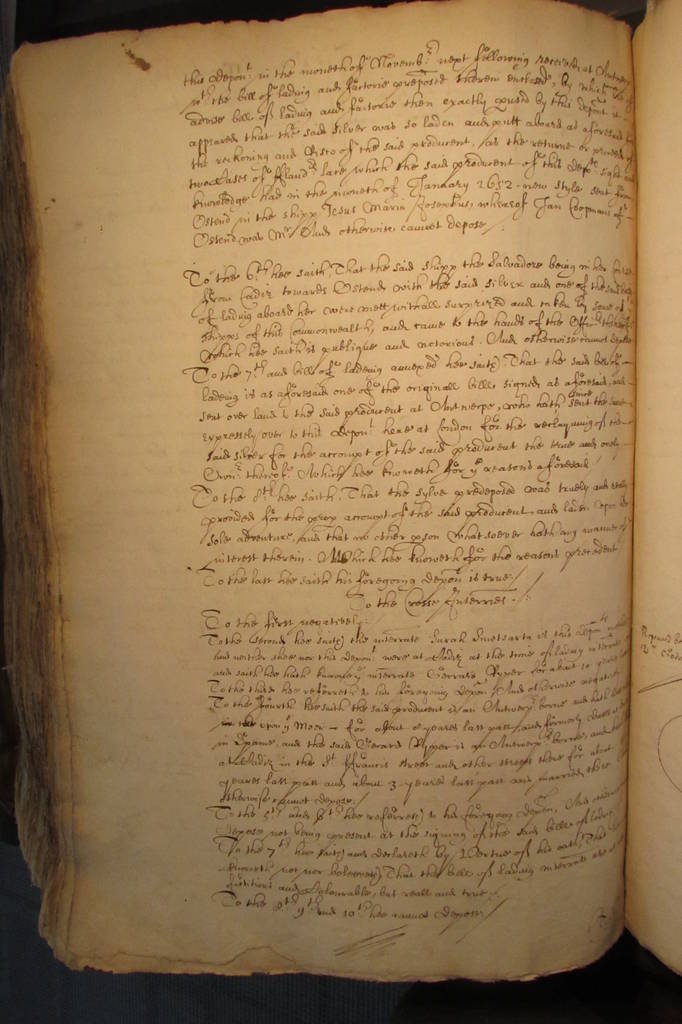 this Depont. in the moneth of Novemb.r next following received at Antwerp
wth the bill of lading and factorie predeposed therein enclosed, by which
advise bill of lading and factorie then exactly perused by this depont it
appeared that the said silver was so laden and putt aboard as aforesaid
the reckoning and risco of the said producent, as the returne or proceed of
two Cases of Fland.rs lace which the said producent of this depts sight and
knowledge had in the moneth of January 1652 new style sent from
Ostend in the shipp Jesus Maria Joseph, whereof Jan Coopmans of
Ostend was Mr. And otherwise cannot depose
To the 6th hee saith, That the said shipp the Salvadore being in her course
from Cadiz towards Ostend with the said silver and one of the said bills
of lading aboard her were mett withall surprized and taken by some of
shipps of this Commonwealth, and came to the hands of the
which hee saith is publique and notorious. And otherwise cannot depose
To the 7th and bill of ladeing annexed hee saith, That the said bill of
ladeing is as aforesaid one of the originall bills signed as aforesaid, and
sent over land to the said producent at Antwerpe, who hath since sent the same
expressely over to this depont here at London for the reclayming of the
said silver for the accompt of the said producent the true and onely
Owner thereof. Which hee knoweth for ye reasons aforesaid
To the 8th hee saith, That the sylver predeposed was truely and really
provided for the proper accompt of the said producent and laden upon his
sole adventure, and that no other person whatsoever hath any manner of
interest therein. Which hee knoweth for the reasons precedent
To the last hee saith his foregoing depon is true
To the Crosse Interries.
To the first negatively.
To the second hee saith the interrate Sarah is this deponts
and neither shee nor this depont were at Cadiz at the time of lading interrate
and saith hee hath knowne ye interrate Gerrard Rypper for about 10 yeares
To the third hee referreth to his foregoing depon. And otherwise negatively
To the fourth hee saith the said producent is an Antwerper borne and hath
upon ye Meer for about yeares last past, and formerly dwelt
in Spaine, and the said Gerard Rypper is an Antwerper borne and
at Cadiz in the St. Francis street and other streets there for about
yeares last past and about 3 yeares last past was married there
otherwise cannot depose.
To the 5th and 6th hee referreth to his foregoing depon, And otherwise
depose not being present at the signing of the said bills of lading
To the 7th hee saith and declareth by vertue of his oath, That
knoweth not nor beleeveth That the bill of lading interrate are
fictitious and Colourable, but reall and true.
To the 8th 9th and 10th hee cannot depose.